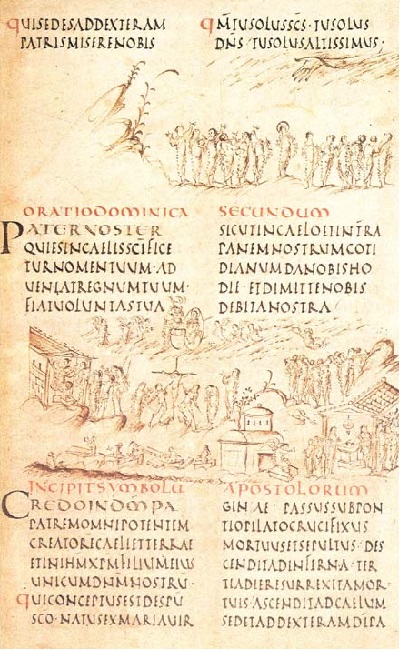 QUISEDESADDEXTERAM
PATRISMISERENOBIS
QMTUSOLUSSCS·TUSOLUS
DNS·TUSOLUSALTISSIMUS·
ORATIODOMINICA
PATERNOSTER
QUIESINCAELISSCIFICE
TURNOMENTUUM·AD
UENIATREGNUMTUUM·
FIATUOLUNTASTUA
SECUNDUM
SICUTINCAELOETINTRA
PANEMNOSTRUMCOTI
DIANUMDANOBISHO
DIE·ETDIMITTENOBIS
DEBITANOSTRA
INCIPITSYMBOLU
CREDOINDMPA
PATREMOMNIPOTENTEM
CREATORECAELIETTERRAE
ETINIHMXPMFILIUMEIUS
UNICUMDNMNOSTRU·
QUICONCEPTUSESTDESPU
SCO·NATUSEXMARIAUIR
APOSTOLORUM
GINAE PASSUSSUBPON
TIOPILATOCRUCIFIXUS
MORTUUSETSEPULTUS·DES
CENDITADINFERNA·TER
TIADIERESURREXITAMOR
TUIS·ASCENDITADCAELUM
SEDETADDEXTERAMDIPA